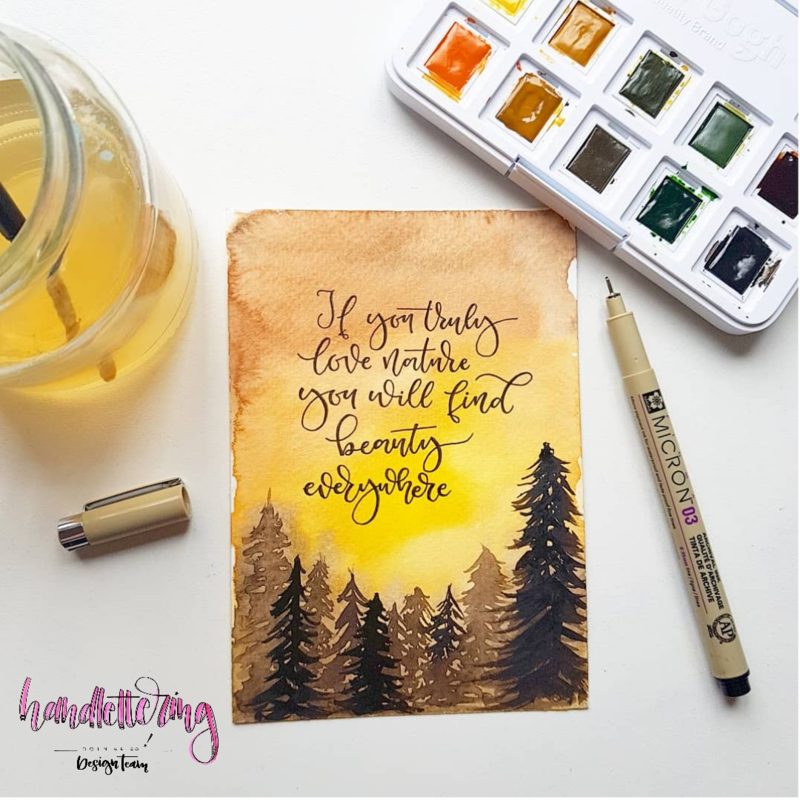 Gogh
uality Brand
If you truly
love nature
you will find
beauty
everywhere
MICRON 03
ARCHIVAL INK
QUALITÉ D'ARCHIVAGE
TINTA DE ARCHIVE
AP
handlettering
Design Team